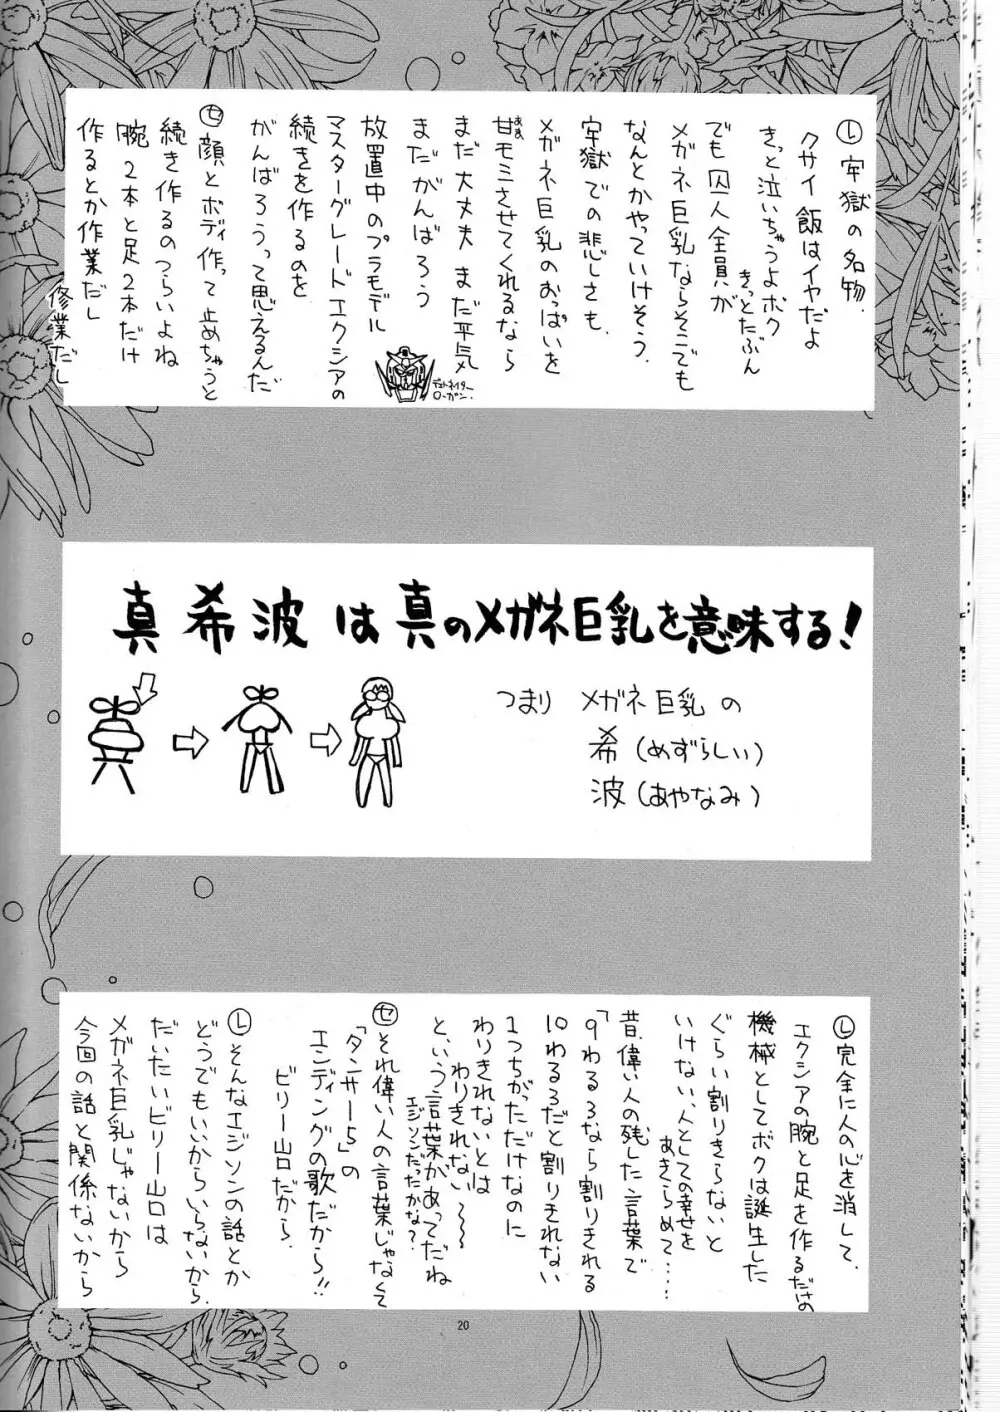 Ⓛ牢獄の名物。
クサイ飯はイヤだよ
きっと泣いちゃうよボク
きっとたぶん
でも囚人全員が
メガネ巨乳ならそこでも
なんとかやっていけそう。
牢獄での悲しさも、
メガネ巨乳のおっぱいを
甘モミさせてくれるなら
あま
まだ大丈夫まだ平気
まだがんばろう
放置中のプラモデル
マスターグレードエクシアの
続きを作るのを
がんばろうって思えるんだ
デュトネイター
ローガン.
㋝顔とボディ作って止めちゃうと
続き作るのつらいよね
腕2本と足2本だけ
作るとか作業だし
修業だし
真希波は真のメガネ巨乳を意味する!
つまり メガネ巨乳の
希(めずらしい)
波(あやなみ)
Ⓛ完全に人の心を消して、
エクシアの腕と足を作るだけの
機械としてボクは誕生した
ぐらい割りきらないと
いけない、人としての幸せを
あきらめて……
昔、偉い人の残した言葉で
「9わる3なら割りきれる
10わる3だと割りきれない
1つちがっただけなのに
わりきれないとは
わりきれない〜〜〜
と、いう言葉があってだね
エジソンだったかな?
㋝それ偉い人の言葉じゃなくて
「ダンサー5」の
エンディングの歌だから!!
ビリー山口だから.
Ⓛそんなエジソンの話とか
どうでもいいからいらないから.
だいたいビリー山口は
メガネ巨乳じゃないから
今回の話と関係ないから
20